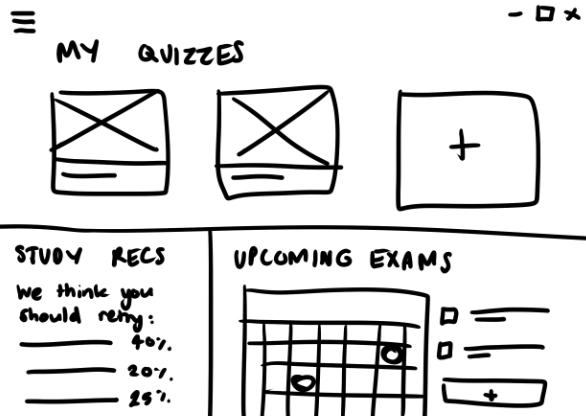 MY QUIZZES
STUDY RECS
We think you
should retry:
40%
20%
25%
UPCOMING EXAMS